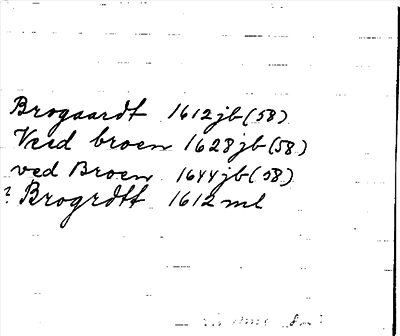 Brogaardt 1612 jb (58)
Veid broen 1628 jb (58)
ved Broen 1644 jb (58)
? Brogrdtt 1612 ml